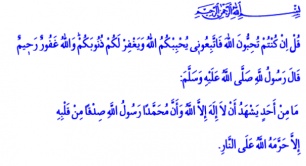 بِسْمِ اللّٰهِ الرَّحْمٰنِ الرَّحِيمِ
قُلْ اِنْ كُنْتُمْ تُحِبُّونَ اللّٰهَ فَاتَّبِعُونِي يُحْبِبْكُمُ اللّٰهُ وَيَغْفِرْ لَكُمْ ذُنُوبَكُمْ وَاللّٰهُ غَفُورٌ رَحِيمٌ
قَالَ رَسُولُ للَّهِ صَلَّى اللَّهُ عَلَيْهِ وَسَلَّمَ:
مَا مِنْ أَحَدٍ يَشْهَدُ أَنْ لاَ إِلَهَ إِلاَّ اللَّهُ وَأَنَّ مُحَمَّدًا رَسُولُ اللَّهِ صِدْقًا مِنْ قَلْبِهِ
إِلاَّ حَرَّمَهُ اللَّهُ عَلَى النَّارِ.